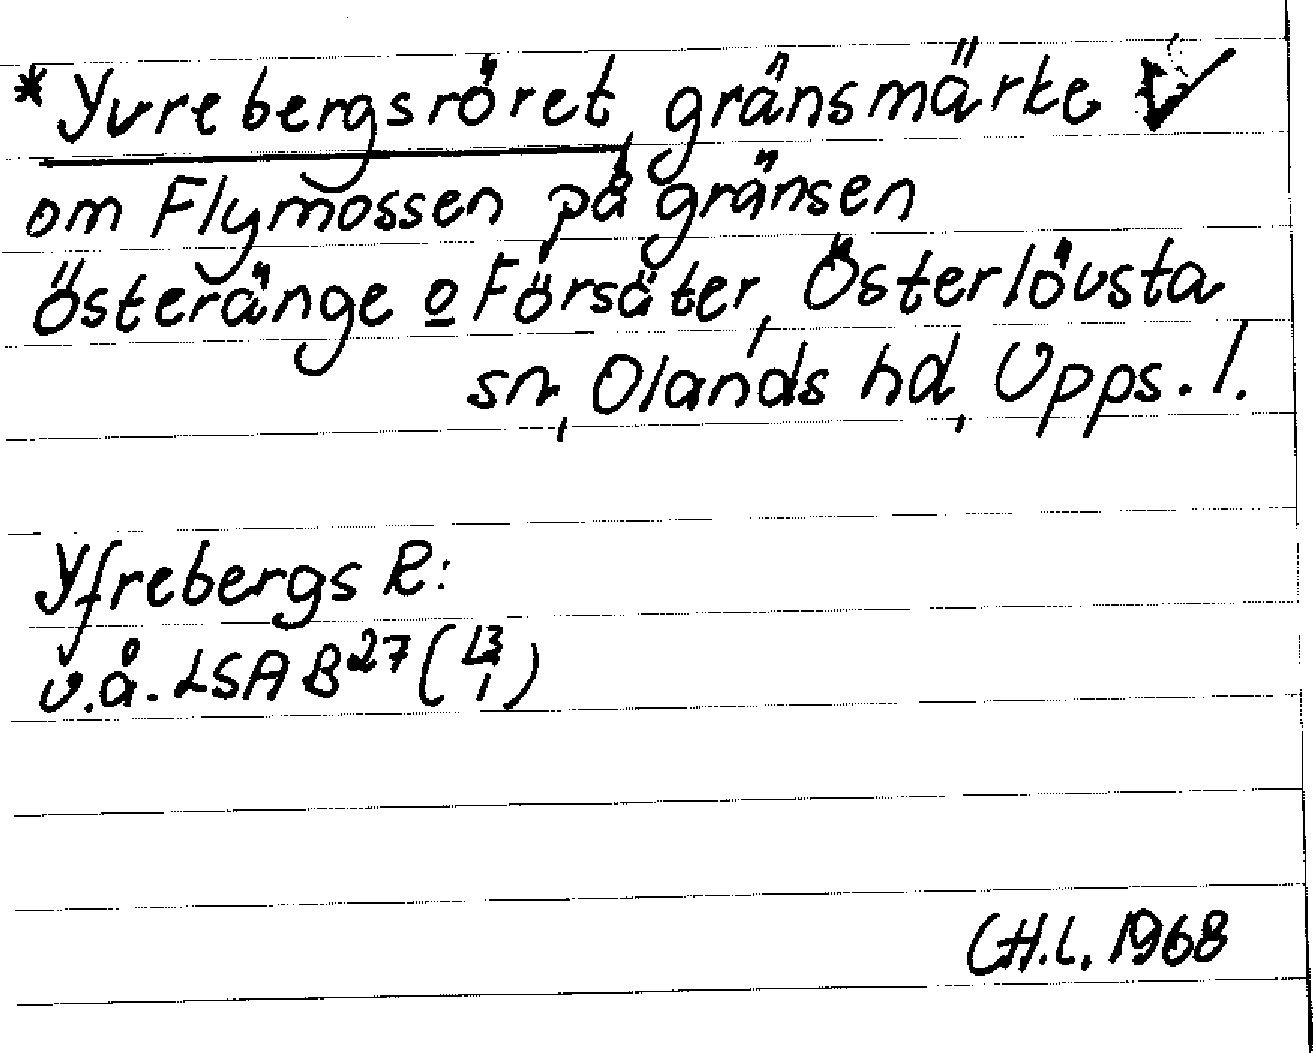 *Yvrebergsröret, gränsmärke V
om Flymossen på gränsen
Österänge o Försäter, Österlövsta
sn, Olands hd, Upps. l.
Yfrebergs R:
o.å. LSA B27 (13/1)
C.H.L. 1968